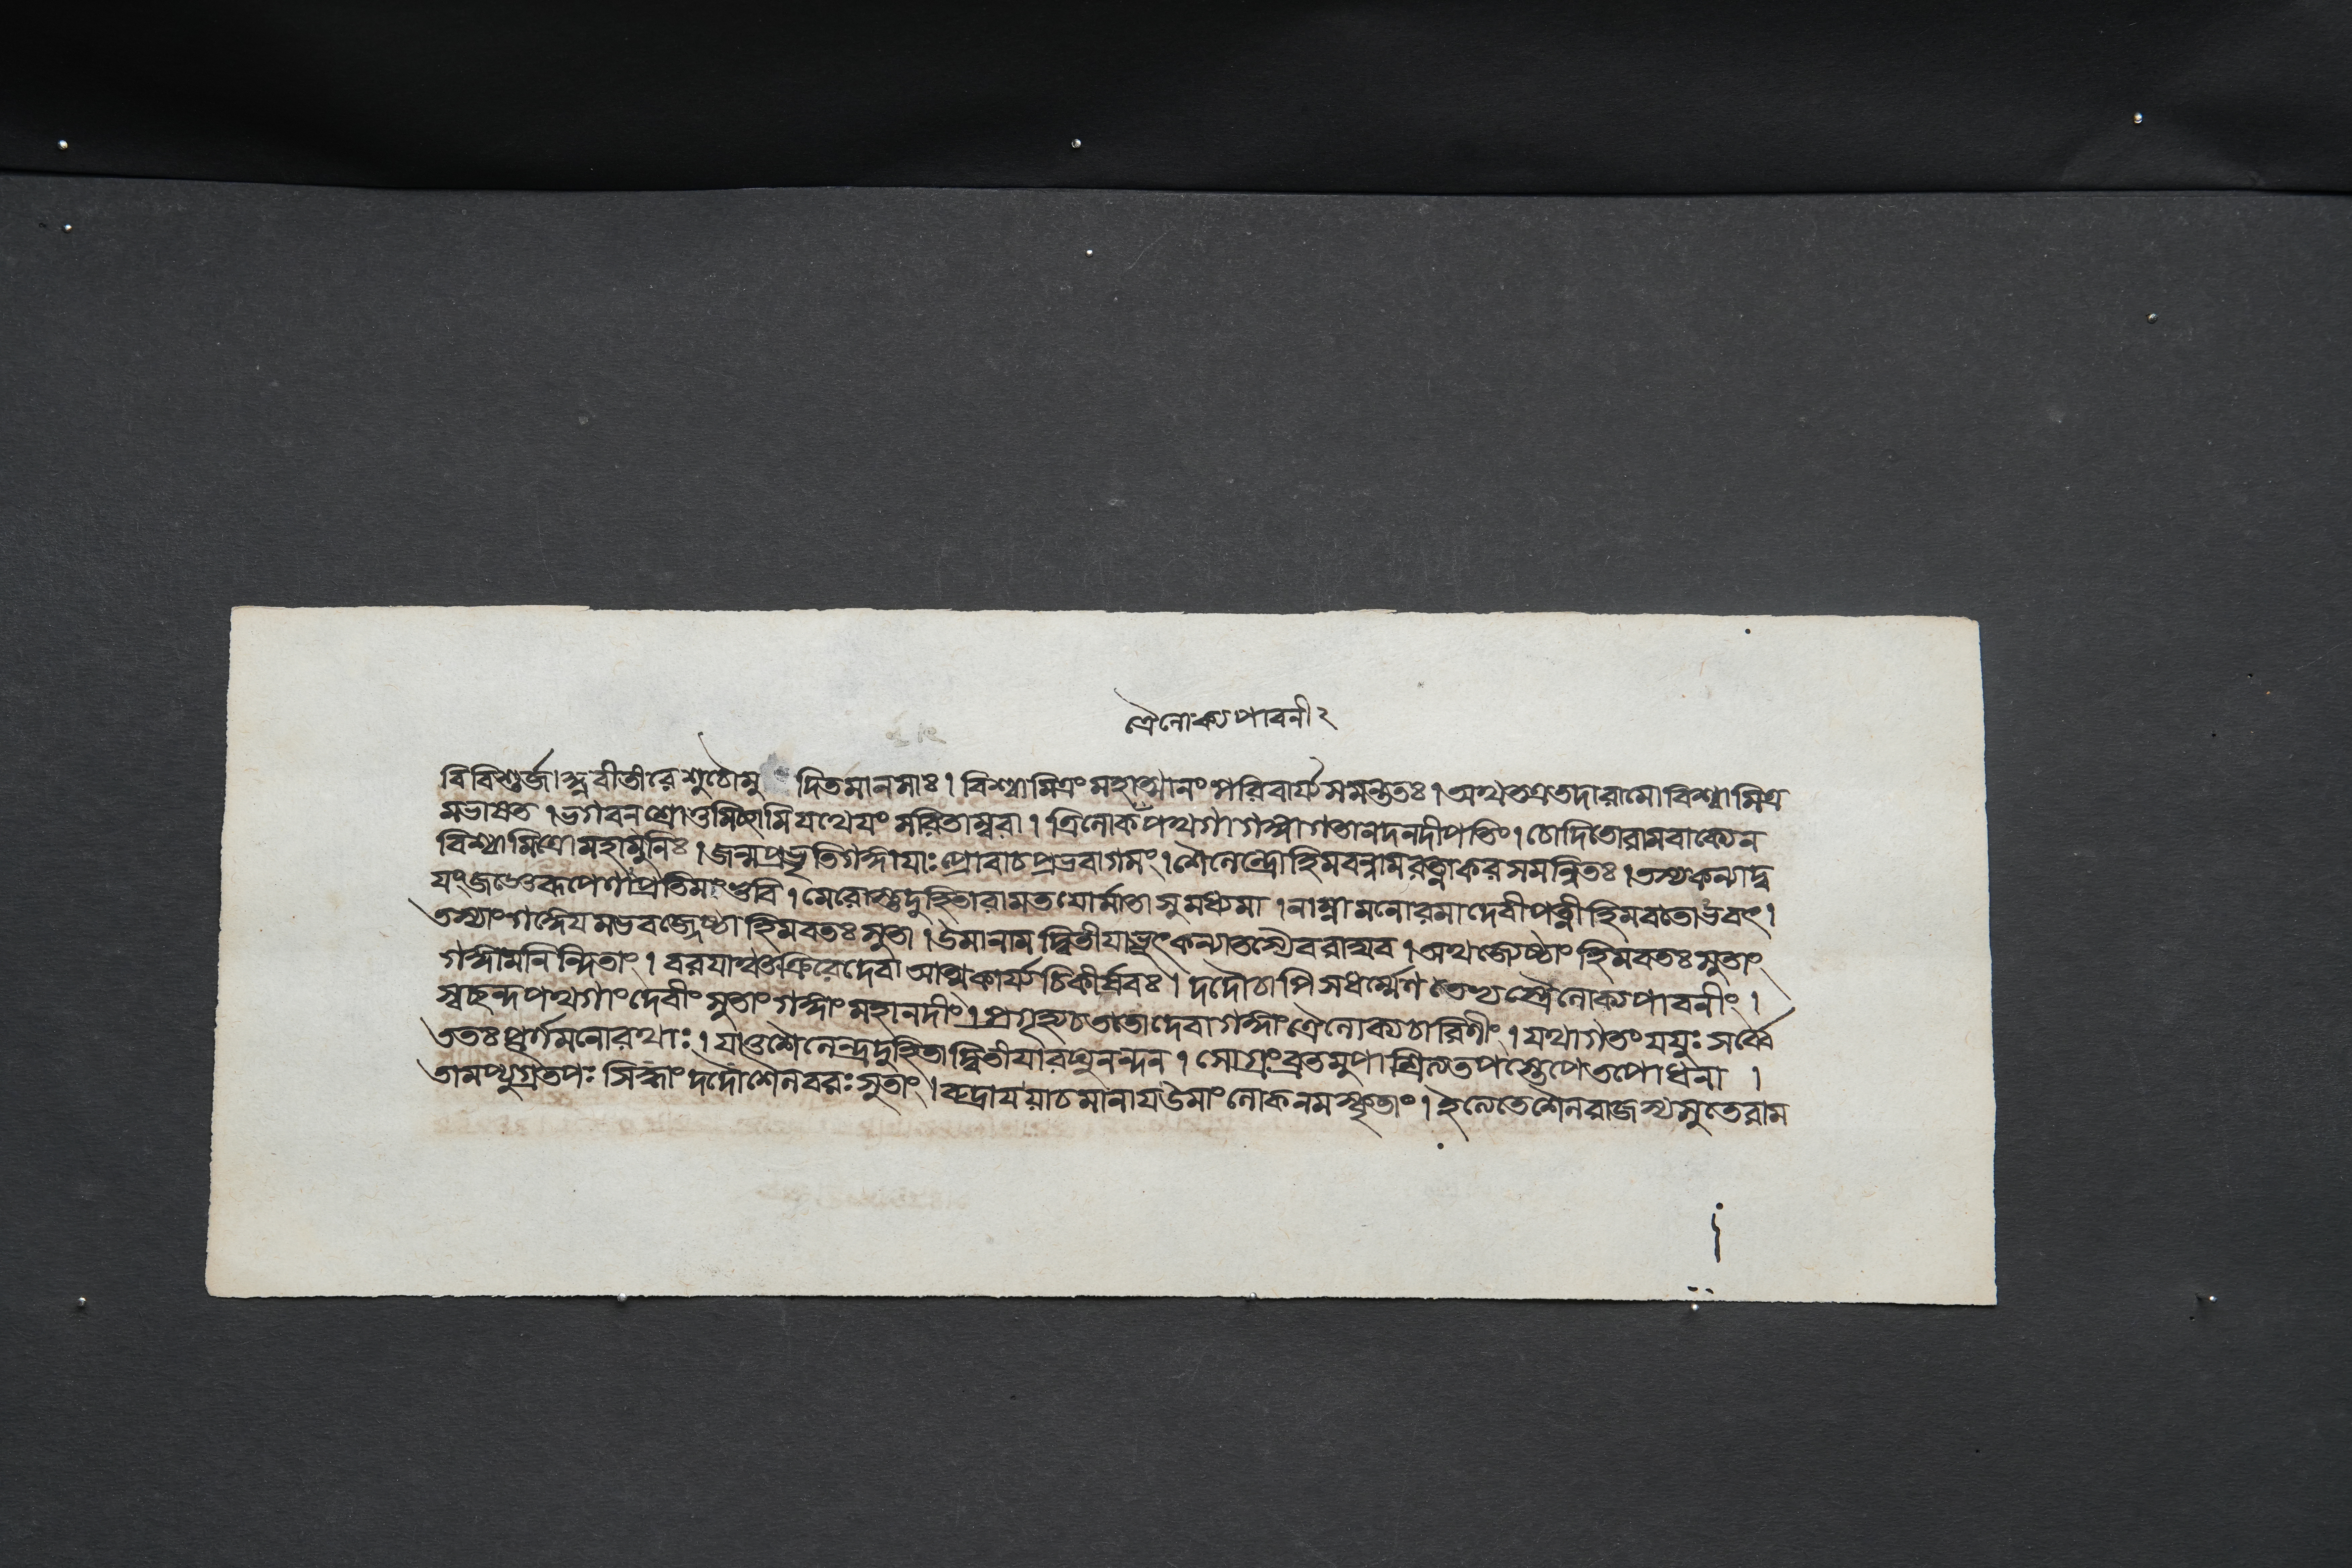 ত্রৈলোক্যপাবনীং
বিবিশুর্জাহ্নবীতীরে শুচৌ মু দিতমানসাঃ । বিশ্বামিত্রং মহাত্মানং পরিবার্য্য সমন্ততঃ । অথ তত্র তদা রামো বিশ্বামিত্র
মভাষত । ভগবন শ্রোতুমিচ্ছামি যথেযং সরিতাম্বরা । ত্রিলোকঁপথগা গঙ্গা গতা নদনদীপতিং । চোদিতো রামবাক্যেন
বিশ্বামিত্রো মহামুনিঃ । জন্মপ্রভৃতি গঙ্গাযাঃ প্রোবাচ প্রভবাগমং । শৈলেন্দ্রো হিমবন্নাম রত্নাকরসমন্বিতঃ । তস্য কন্যাদ্ব
যং জজ্ঞে রূপেণাপ্রতিমং ভুবি । মেরোস্তু দুহিতা রাম তযোর্মাতা সুমধ্যমা । নাম্না মনোরমা দেবী পত্নী হিমবতোভবৎ ।
তস্যাং গঙ্গেযমভবজ্জ্যেষ্ঠা হিমবতঃ সুতা । উমা নাম দ্বিতীযাভূৎ কন্যা তস্যৈব রাঘব । অথ জ্যেষ্ঠাং হিমবতঃ সুতাং
গঙ্গামনিন্দিতাং । বরযাম্বভূত্রুিরে দেবা আত্মকার্য্যচিকীর্ষবঃ । দদৌ চাপি স ধর্ম্মেণ তেভ্যস্ত্রৈলোক্যপাবনীং ।
স্বচ্ছন্দপথগাং দেবীং সুতাং গঙ্গাং মহানদীং । প্রগৃহ্য চ ততো দেবা গঙ্গাং ত্রৈলোক্যচারিণীং । যথাগতং যযুঃ সর্ব্বে
ততঃ পূর্ণমনোরথাঃ । যা তু শৈলেন্দ্রদুহিতা দ্বিতীযা রঘুনন্দন । সোগ্রং ব্রতমুপাশ্রিত্য তপস্তেপে তপোধনা ।
তামপ্যুগ্রতপঃ সিদ্ধাং দদৌ শৈলবরঃ সুতাং । রুদ্রায যাচমানায উমাং লোকনমস্কৃতাং । ইত্যেতে শৈলরাজস্য সুতে রাম